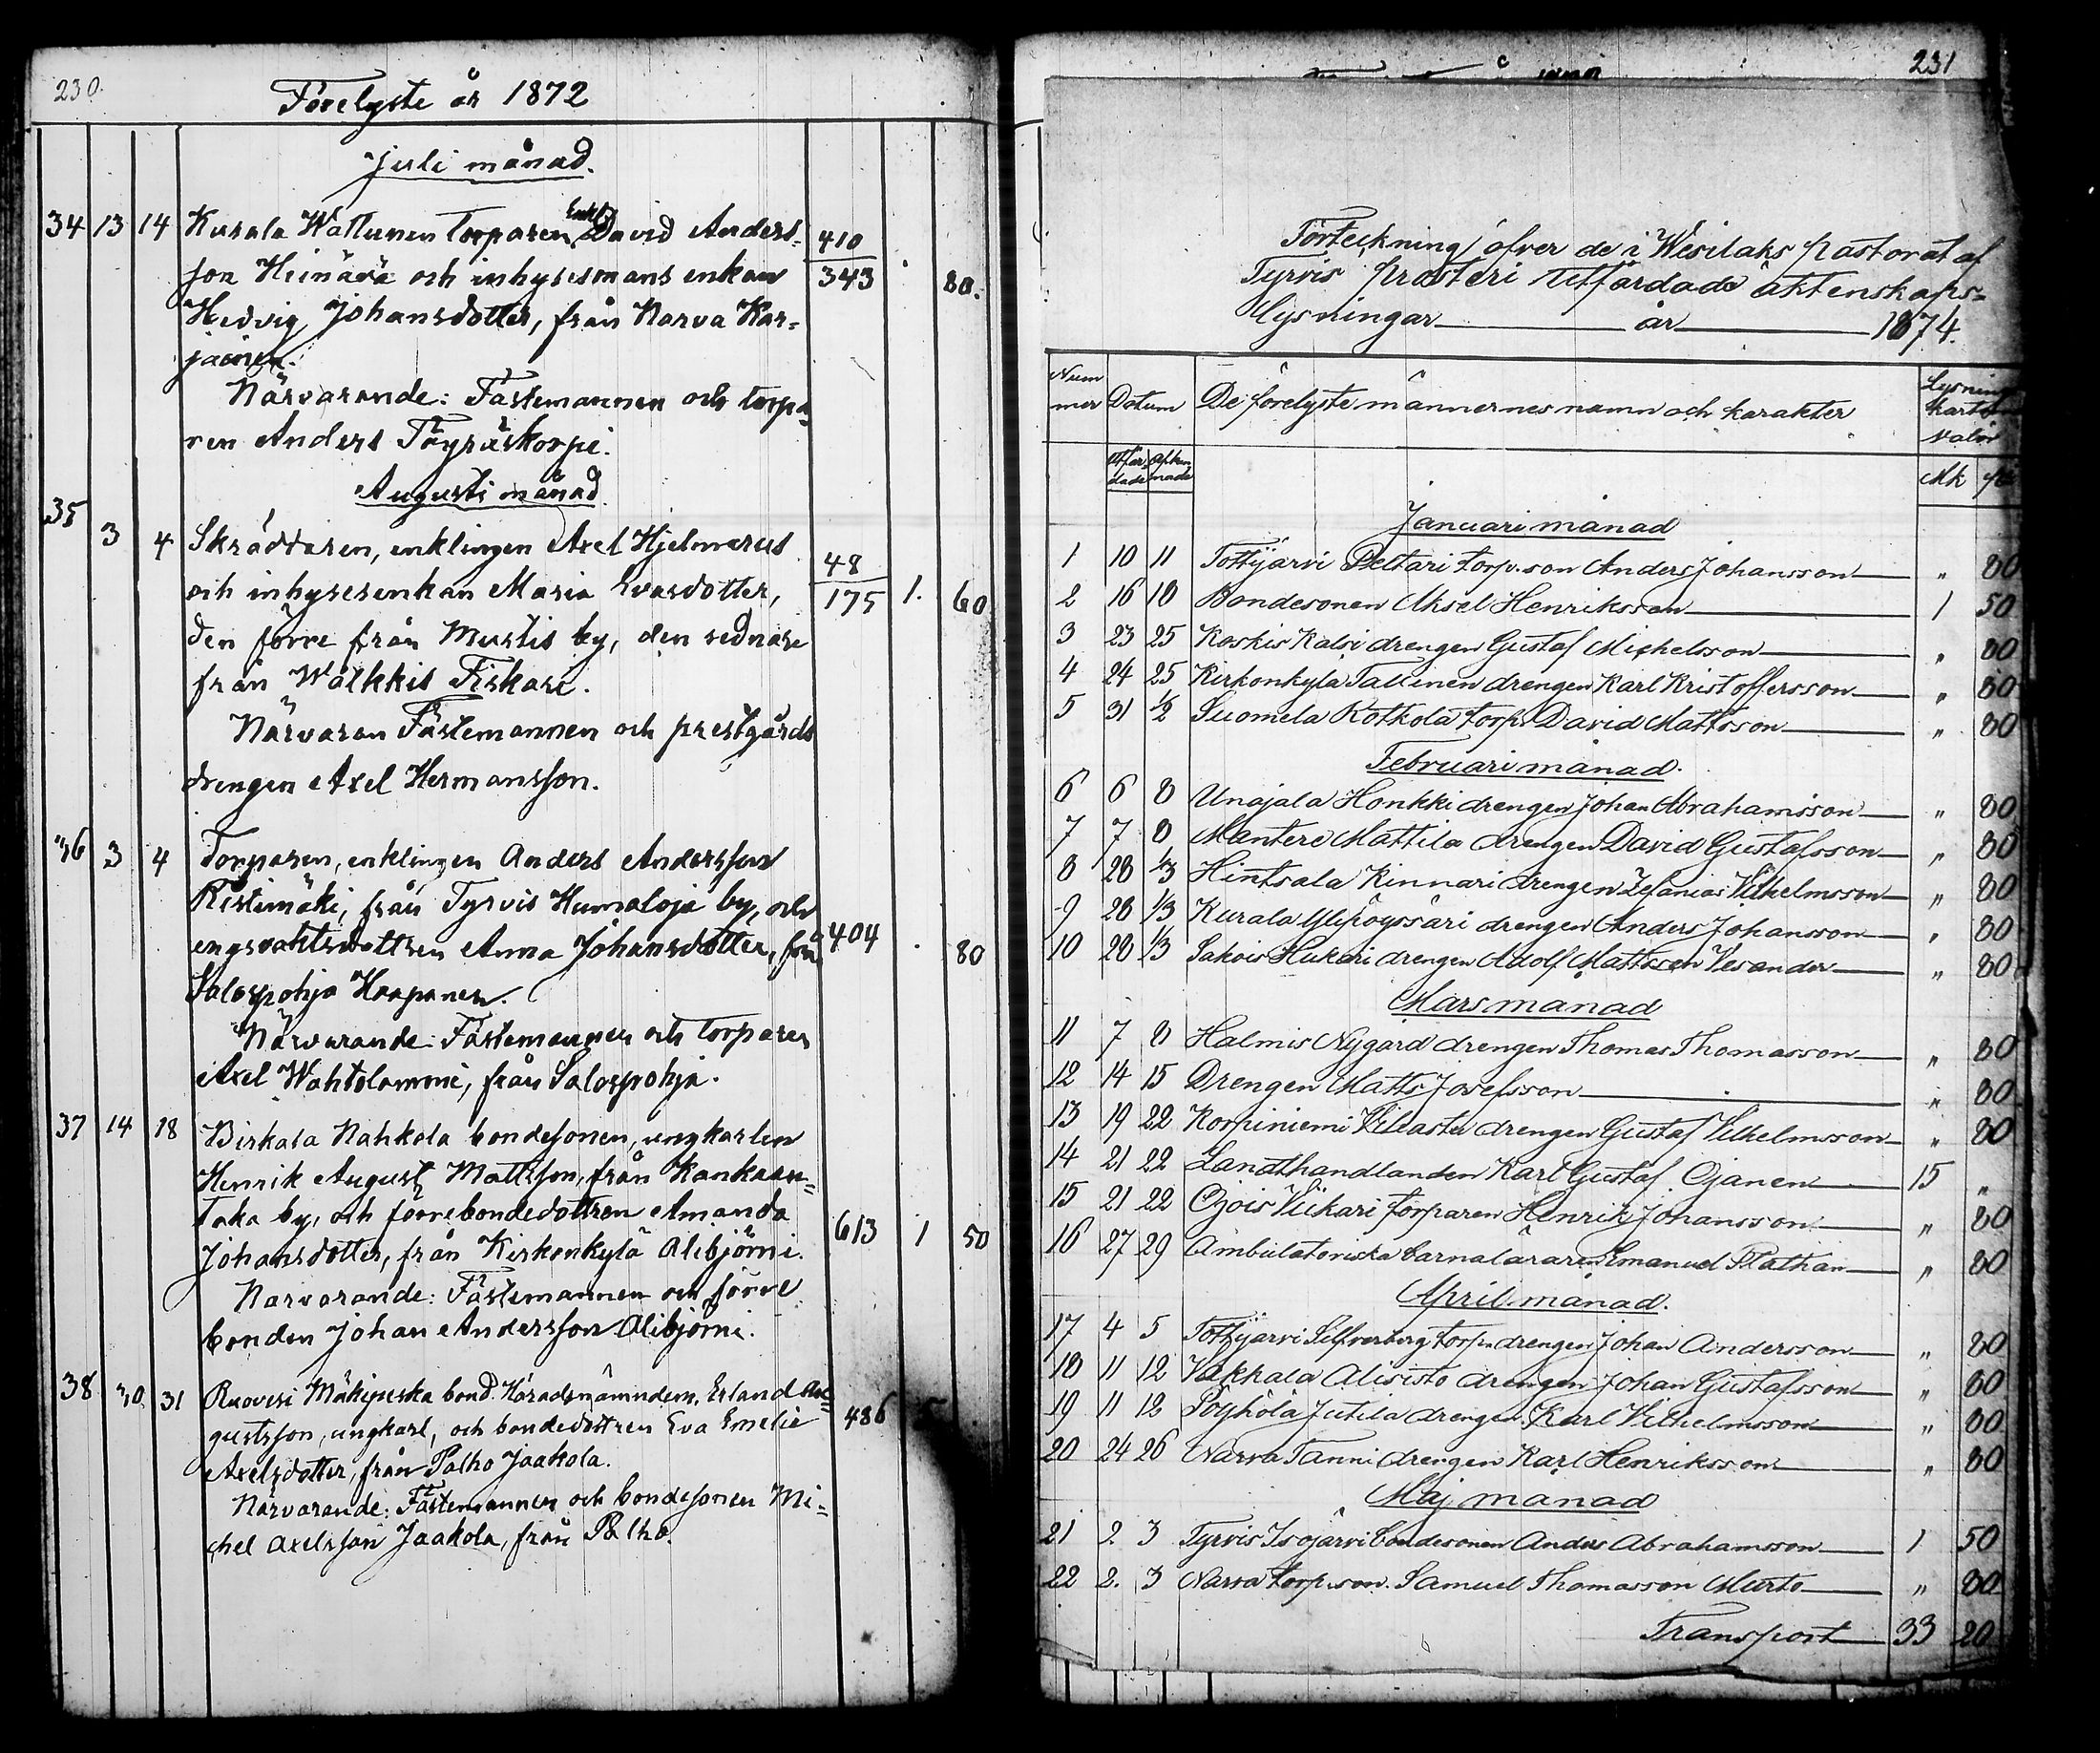 230.
Förelyste år 1872
Juli månad.
34 13 14 Kurala Wattunen torparen Enkl. David Anders-
son Heinävä och inhysesmans enkan
410
343 80.
Hedvig Johansdotter, från Narva Kar-
jainen.
Närvarande: Fästemannen och torpa-
ren Anders Töyräskorpi.
Augusti månad
35 3 4 Skräddaren, enklingen Axel Hjelmerus
och inhysesenkan Maria Evasdotter,
48
175 1. 60
den förre från Mustis by, den sednare
från Wälkkis Fiskari.
Närvaran Fästemannen och prestgårds
drengen Axel Hermansson.
36 3 4 Torparen, enklingen Anders Andersson
Ristimäki, från Tyrvis Humaloja by, och
engsvaktsdottren Anna Johansdotter, från 404 80
Salospohja Haapanen.
Närvarande: Fästemannen och torparen
Axel Wahtolammi, från Salospohja.
37 14 18 Birkala Nahkola bondesonen, ungkarlen
Henrik August Mattsson, från Kankaan-
taka by, och förre bondedottren Amanda
Johansdotter, från Kirkonkylä Alibjörni. 613 1 50
Närvarande: Fästemannen och förre
bonden Johan Andersson Alibjörni.
38 30. 31 Ruovesi Mäkipeska bond. Häradsnämndem. Erland Au-
gustsson, ungkarl, och bondedottren Eva Emelie 486
Axelsdotter, från Palho Jaakola.
Närvarande: Fästemannen och bondesonen Mi-
chel Axelsson Jaakola, från Palho.
231
Förteckning öfver de i Wesilaks pastorat af
Tyrvis prosteri utfärdade äktenskaps-
lysningar år 1874.
Num
mer Datum De förelyste männernes namn och karakter
Lysnings
karte
valör
Utfär
dade Afkun
nade Mk
Januari månad
1 10 11 Tottijärvi Peltari torp. son Anders Johansson " 80
2 16 18 Bondesonen Aksel Henriksson 1 50
3 23 25 Koskis Kalsi drengen Gustaf Michelsson " 80
4 24 25 Kirkonkylä Tallinen drengen Karl Kristoffersson " 80
5 31 1/2 Suomela Kotkola torp. David Mattsson " 80
Februari månad.
6 6 8 Unajala Honkki drengen Johan Abrahamsson " 80
7 7 8 Mantere Mattila drengen David Gustafsson " 80
8 28 1/3 Hintsala Kinnari drengen Zefanias Vilhelmsson " 80
9 28 1/3 Kurala Ylipöyssäri drengen Anders Johansson " 80
10 28 1/3 Sakois Hukari drengen Adolf Mattsson Vesander " 80
Mars månad
11 7 8 Halmis Nygård drengen Thomas Thomasson " 80
12 14 15 Drengen Matts Josefsson " 80
13 19 22 Korpiniemi drengen Gustaf Vilhelmsson " 80
14 21 22 Landthandlanden Karl Gustaf Ojanen 15 "
15 21 22 Ojois Viikari torparen Henrik Johansson " 80
16 27 29 Ambulatoriska barnaläraren Emanuel Plathan " 80
April månad.
17 4 5 Tottijärvi Silfverberg torp. drengen Johan Andersson " 80
18 11 12 Vakkala Alisisto drengen Johan Gustafsson " 80
19 11 12 Pöyhölä Jutila drengen Karl Vilhelmsson " 80
20 24 26 Narva Tanni drengen Karl Henriksson " 80
Maj månad
21 2 3 Tyrvis Isojärvi bondesonen Anders Abrahamsson 1 50
22 2. 3 Narva torp. son. Samuel Thomasson Murto " 80
Transport 33 20